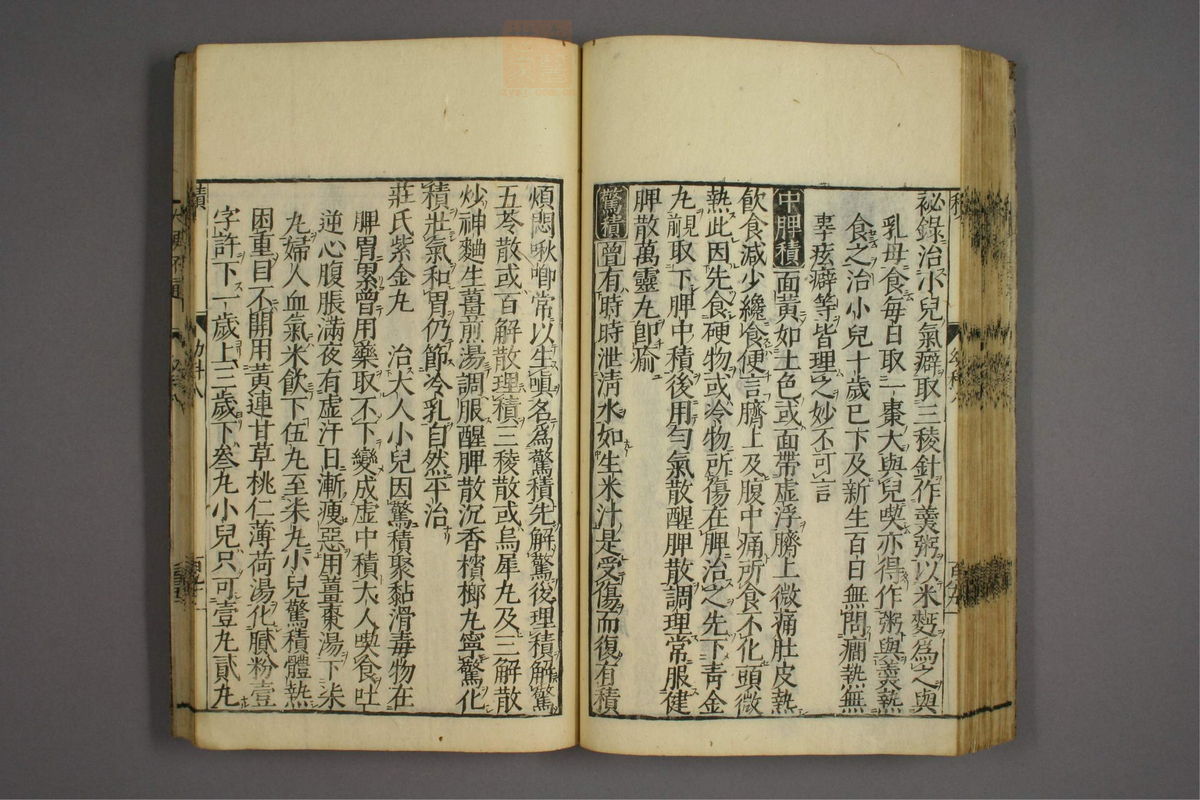 祕錄治小兒氣癖取三稜針作羹粥以米麪爲之與
乳母食每日取一棗大與兒喫亦得作粥與羹熱
食之治小兒十歲已下及新生百日無問癇熱無
辜痃癖等皆理之妙不可言
中脾積面黃如土色或面帶虛浮臍上微痛肚皮熱
飲食減少纔食便言臍上及腹中痛所食不化頭微
熱此因先食硬物或冷物所傷在脾治之先下靑金
丸覗取下脾中積後用勻氣散醒脾散調理常服健
脾散萬靈丸卽瘉
驚積曾有時時泄淸水如生米汁是受傷而復有積
煩悶啾喞常以生嗔名爲驚積先解驚後理積解驚
五苓散或百解散理積三稜散或烏犀丸及三解散
炒神麯生薑煎湯調服醒脾散沉香檳榔丸寧驚化
積壯氣和胃仍節冷乳自然平治
莊氏紫金丸　治大人小兒因驚積聚黏滑毒物在
脾胃累曾用藥取不下變成虛中積大人喫食吐
逆心腹脹滿夜有虛汗日漸瘦惡用薑棗湯下柒
丸婦人血氣米飮下伍丸至柒丸小兒驚積體熱
困重目不開用黃連甘草桃仁薄荷湯化膩粉壹
字許下一歲上三歲下叁丸小兒只可壹丸貳丸